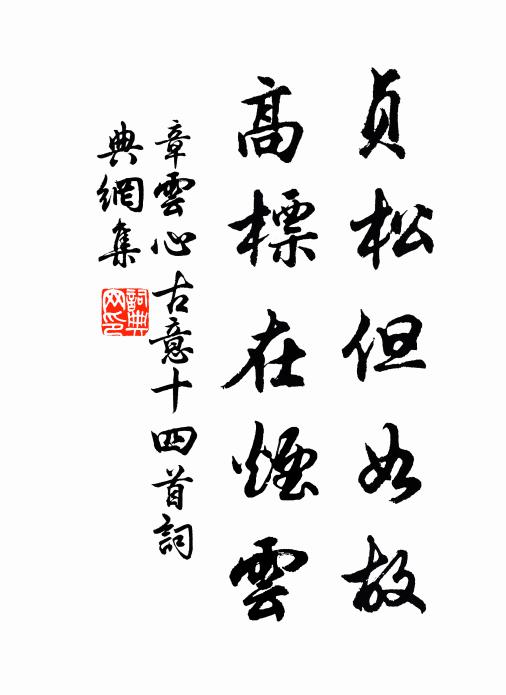 貞松但如故
高標在煙雲
章雲心古意十四首詞
典網集
詞典網印